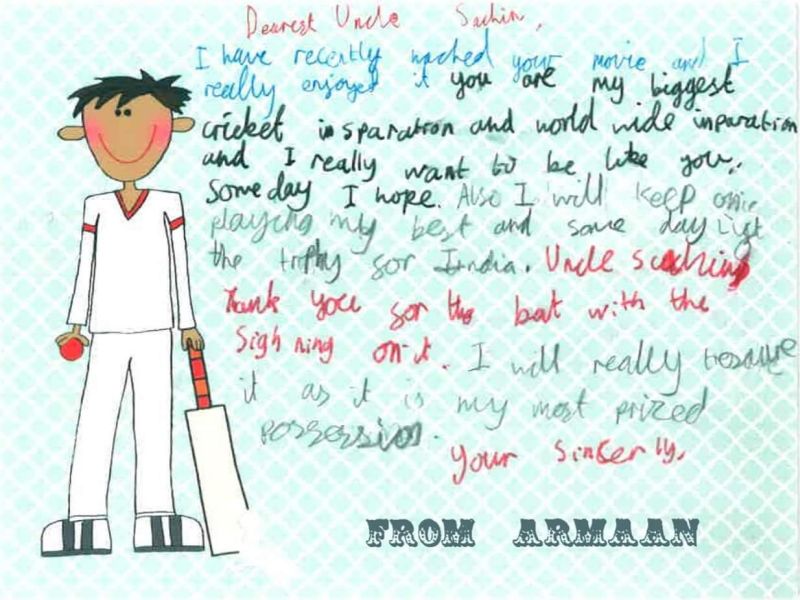 Dearest Uncle Sachin,
I have recently wached your movie and I
really enjoyed it you are my biggest
cricket insparatron and world wide inparation
and I really want to be like you.
Some day I hope. Also I will keep on
playing my best and some day lift
the trophy for India. Uncle Sachin
Thank you for the bat with the
Sighning on it. I will really treasure
it as it is my most prized
possession.
your sincerly,
FROM ARMAAN